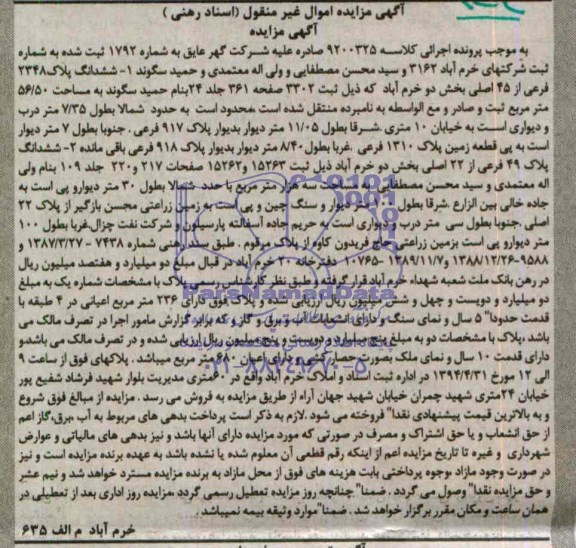 آگهی مزایده اموال غیر منقول (اسناد رهنی)
آگهی مزایده
به موجب پرونده اجرائی کلاسه ۹۲۰۰۳۲۵ صادره علیه شرکت گهر عایق به شماره ۱۷۹۲ ثبت شده به شماره
ثبت شرکتهای خرم آباد ۳۱۶۲ و سید محسن مصطفایی و ولی اله معتمدی و حمید سگوند ۱- ششدانگ پلاک۲۳۴۸
فرعی از ۴۵ اصلی بخش دو خرم آباد که ذیل ثبت ۳۳۰۲ صفحه ۳۶۱ جلد ۲۴بنام حمید سگوند به مساحت ۵۶/۵۰
متر مربع ثبت و صادر و مع الواسطه به نامبرده منتقل شده است .محدود است به حدود شمالا بطول ۷/۳۵ متر درب
و دیواری است به خیابان ۱۰ متری .شرقا بطول ۱۱/۰۵ متر دیوار بدیوار پلاک ۹۱۷ فرعی . جنوبا بطول ۷ متر دیوار
است به پی قطعه زمین پلاک ۱۳۱۰ فرعی .غربا بطول ۸/۴۰ متر دیوار بدیوار پلاک ۹۱۸ فرعی باقی مانده ۲- ششدانگ
پلاک ۴۹ فرعی از ۲۲ اصلی بخش دو خرم آباد ذیل ثبت ۱۵۲۶۳ و۱۵۲۶۲ صفحات ۲۱۷ و۲۲۰ جلد ۱۰۹ بنام ولی
اله معتمدی و سید محسن مصطفایی به مساحت سه هزار متر مربع با حدد شمالا بطول ۳۰ متر دیوارو پی است به
جاده خالی بین الزارع .شرقا بطول متر دیوار و سنگ چین و پی است به زمین زراعتی محسن بازگیر از پلاک ۲۲
اصلی .جنوبا بطول سی متر درب و دیواری است به حریم جاده آسفالته پارسیلون و شرکت نفت چزال.غربا بطول ۱۰۰
متر دیوارو پی است بزمین زراعتی حاج فریدون کاوه از پلاک مرقوم . طبق سند رهنی شماره ۷۴۳۸ - ۱۳۸۷/۳/۲۷ و
۹۵۸۸-۱۳۸۸/۱۲/۲۶ و ۱۳۸۹/۱۱/۷-۱۰۷۶۵ دفترخانه ۲۰ خرم آباد در قبال مبلغ دو میلیارد و هفتصد میلیون ریال
در رهن بانک ملت شعبه شهداء خرم آباد قرار گرفته و طبق نظر کارشناس رسمی پلاک با مشخصات شماره یک به مبلغ
دو میلیارد و دویست و چهل و شش میلیون ریال ارزیابی شده و پلاک فوق دارای ۲۳۶ متر مربع اعیانی در ۴ طبقه با
قدمت حدودا" ۵ سال و نمای سنگ و دارای انشعابات آب و برق و گاز و که برابر گزارش مامور اجرا در تصرف مالک می
باشد .پلاک با مشخصات دو به مبلغ پنج میلیارد و دویست و پنج میلیون ریال ارزیابی شده و در تصرف مالک می باشدو
دارای قدمت ۱۰ سال و نمای ملک بصورت حصار کشی و دارای اعیان ۶۸۰متر مربع میباشد . پلاکهای فوق از ساعت ۹
الی ۱۲ مورخ ۱۳۹۴/۴/۳۱ در اداره ثبت اسناد و املاک خرم آباد واقع در ۶۰متری مدیریت بلوار شهید فرشاد شفیع پور
خیابان ۲۴متری شهید چمران خیابان شهید جهان آراء از طریق مزایده به فروش می رسد . مزایده از مبالغ فوق شروع
و به بالاترین قیمت پیشنهادی نقدا" فروخته می شود .لازم به ذکر است پرداخت بدهی های مربوط به آب ،برق،گاز اعم
از حق انشعاب و یا حق اشتراک و مصرف در صورتی که مورد مزایده دارای آنها باشد و نیز بدهی های مالیاتی و عوارض
شهرداری و غیره تا تاریخ مزایده اعم از اینکه رقم قطعی آن معلوم شده یا نشده باشد به عهده برنده مزایده است و نیز
در صورت وجود مازاد ،وجوه پرداختی بابت هزینه های فوق از محل مازاد به برنده مزایده مسترد خواهد شد و نیم عشر
و حق مزایده نقدا" وصول می گردد . ضمنا" چنانچه روز مزایده تعطیل رسمی گردد ،مزایده روز اداری بعد از تعطیلی در
همان ساعت و مکان مقرر برگزار خواهد شد . ضمنا"موارد وثیقه بیمه نمیباشد .
خرم آباد م الف ۶۳۵
ParsNamadData
۰۲۱-۸۸۳۴۹۶۷۰-۵